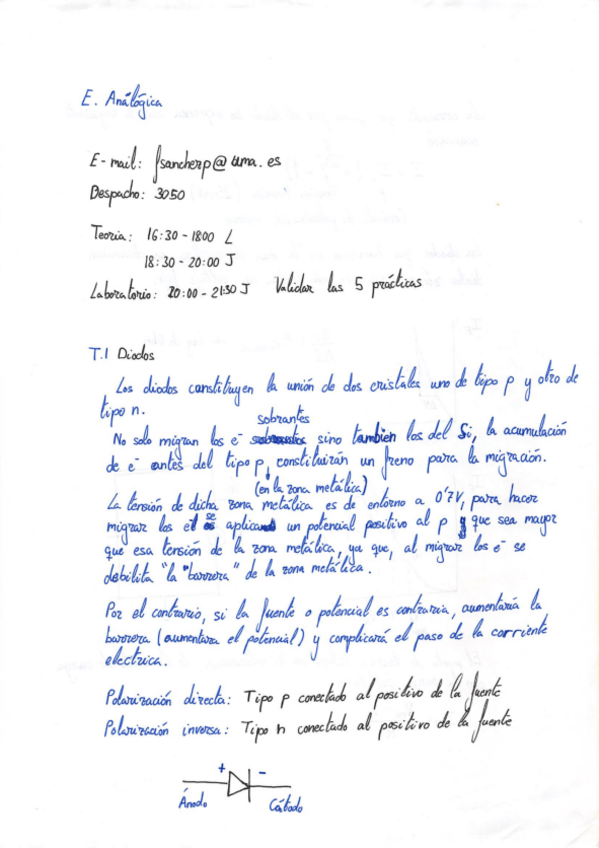 E. Analógica
E-mail: fsancherp@uma.es
Despacho: 3050
Teoria: 16:30-1800 L
18:30-20:00 J
Laboratorio: 20:00-21:30 J Validar las 5 prácticas
T.1 Diodos
Los diodos constituyen la unión de dos cristales uno de tipo p y otro de
tipo n.
sobrantes
No solo migran los e⁻ sino también los del Si, la acumulación
de e⁻ antes del tipo p, constituirán un freno para la migración.
(en la zona metálica)
La tensión de dicha zona metálica es de entorno a 0'7V, para hacer
migrar los e⁻ se aplica un potencial positivo al p y que sea mayor
que esa tensión de la zona metálica, ya que, al migrar los e⁻ se
debilita "la "barrera" de la zona metálica.
Por el contrario, si la fuente o potencial es contraria, aumentaría la
barrera (aumentara el potencial) y complicará el paso de la corriente
electrica.
Polarización directa: Tipo p conectado al positivo de la fuente
Polarización inversa: Tipo n conectado al positivo de la fuente
+ -
Ánodo Cátodo